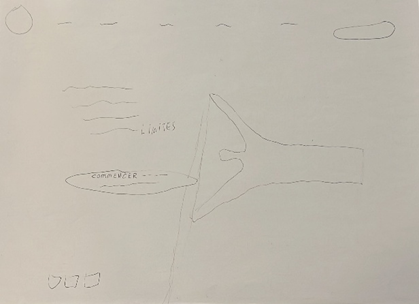 LIMITES
COMMENCER